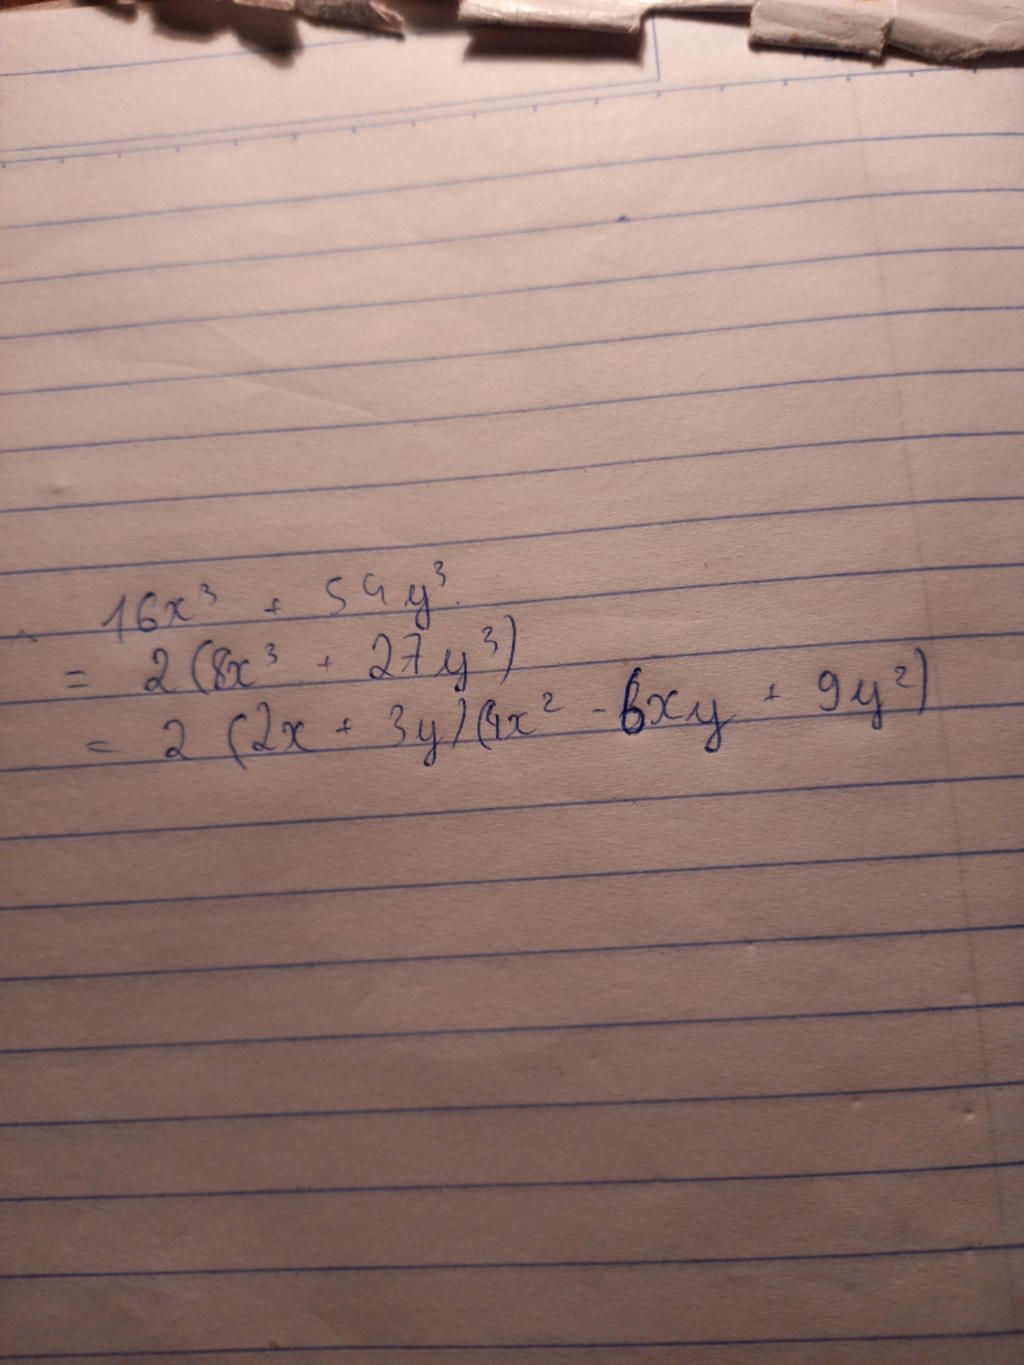 16x³ + 54y³.
= 2(8x³ + 27y³)
= 2(2x + 3y)(4x² - 6xy + 9y²)